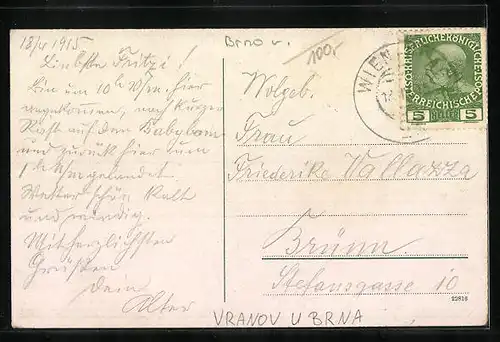 13/4 1915
Brno v.
100,-
Liebste Fritzi!
Bin um 10h
angekommen, nach kurzer
Rast auf den Babylom
und zurück hier um
gelandet
Wetter schön kalt
und windig.
Mit herzlichsten
Grüßen
Dein
Alter
WIEN
KAISERLICHE KÖNIGLICHE
ÖSTERREICHISCHE
5 HELLER 5
Wolgeb.
Frau
Friederike Vallazza
Brünn
Stefansgasse 10
22816
VRANOV U BRNA